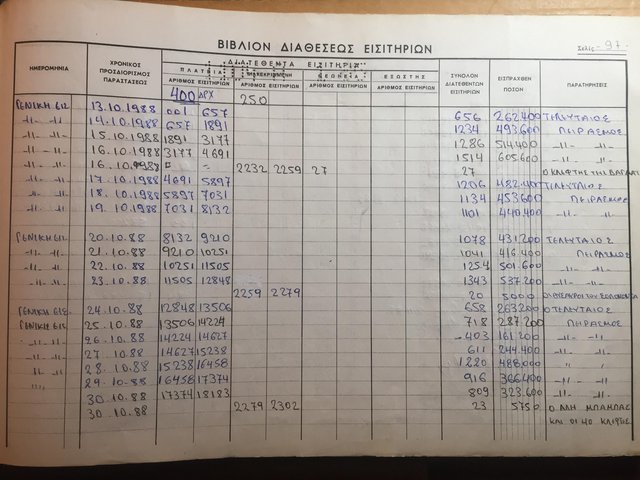 ΒΙΒΛΙΟΝ ΔΙΑΘΕΣΕΩΣ ΕΙΣΙΤΗΡΙΩΝ Σελὶς -97-
ΗΜΕΡΟΜΗΝΙΑ ΧΡΟΝΙΚΟΣ ΠΡΟΣΔΙΟΡΙΣΜΟΣ ΠΑΡΑΣΤΑΣΕΩΣ ΔΙΑΤΕΘΕΝΤΑ ΕΙΣΙΤΗΡΙΑ ΣΥΝΟΛΟΝ ΔΙΑΤΕΘΕΝΤΩΝ ΕΙΣΙΤΗΡΙΩΝ ΕΙΣΠΡΑΧΘΕΝ ΠΟΣΟΝ ΠΑΡΑΤΗΡΗΣΕΙΣ
ΠΛΑΤΕΙΑ ΕΞΩΣΤΗΣ
ΑΡΙΘΜΟΣ ΕΙΣΙΤΗΡΙΩΝ ΑΡΙΘΜΟΣ ΕΙΣΙΤΗΡΙΩΝ ΑΡΙΘΜΟΣ ΕΙΣΙΤΗΡΙΩΝ ΑΡΙΘΜΟΣ ΕΙΣΙΤΗΡΙΩΝ
400 ΔΡΧ 250
ΓΕΝΙΚΗ ΕΙΣ. 13.10.1988 001 657 656 262.400 Ο ΤΕΛΕΥΤΑΙΟΣ
-11- -11- 14.10.1988 657 1891 1234 493.600 ΠΕΙΡΑΣΜΟΣ
-11- -11- 15.10.1988 1891 3177 1286 514.400 -11- -11-
-11- -11- 16.10.1988 3177 4691 1514 605.600 -11- -11-
-11- -11- 16.10.1988 2232 2259 27 27 Ο ΚΛΕΦΤΗΣ ΤΗΣ
-11- -11- 17.10.1988 4691 5897 1206 482.400 Ο ΤΕΛΕΥΤΑΙΟΣ
-11- -11- 18.10.1988 5897 7031 1134 453.600 ΠΕΙΡΑΣΜΟΣ
-11- -11- 19.10.1988 7031 8132 1101 440.400 -11- -11-
ΓΕΝΙΚΗ ΕΙΣ. 20.10.88 8132 9210 1078 431.200 Ο ΤΕΛΕΥΤΑΙΟΣ
-11- -11- 21.10.88 9210 10251 1041 416.400 ΠΕΙΡΑΣΜΟΣ
-11- -11- 22.10.88 10251 11505 1254 501.600 -11- -11-
-11- -11- 23.10.88 11505 12848 1343 537.200 -11- -11-
2259 2279 20 5000
ΓΕΝΙΚΗ ΕΙΣ 24.10.88 12848 13506 658 263.200 Ο ΤΕΛΕΥΤΑΙΟΣ
ΓΕΝΙΚΗ ΕΙΣ 25.10.88 13506 14224 718 287.200 ΠΕΙΡΑΣΜΟΣ
-11- -11- 26.10.88 14224 14627 -403 161.200 -11- -11-
-11- -11- 27.10.88 14627 15238 611 244.400 -11- -11-
-11- -11- 28.10.88 15238 16458 1220 488.000 " "
29.10.88 16458 17374 916 366.400 -11- -11-
30.10.88 17374 18183 809 323.600 -11- -11-
30.10.88 2279 2302 23 5750 Ο ΑΛΗ ΜΠΑΜΠΑΣ
ΚΑΙ ΟΙ 40 ΚΛΕΦΤΕΣ